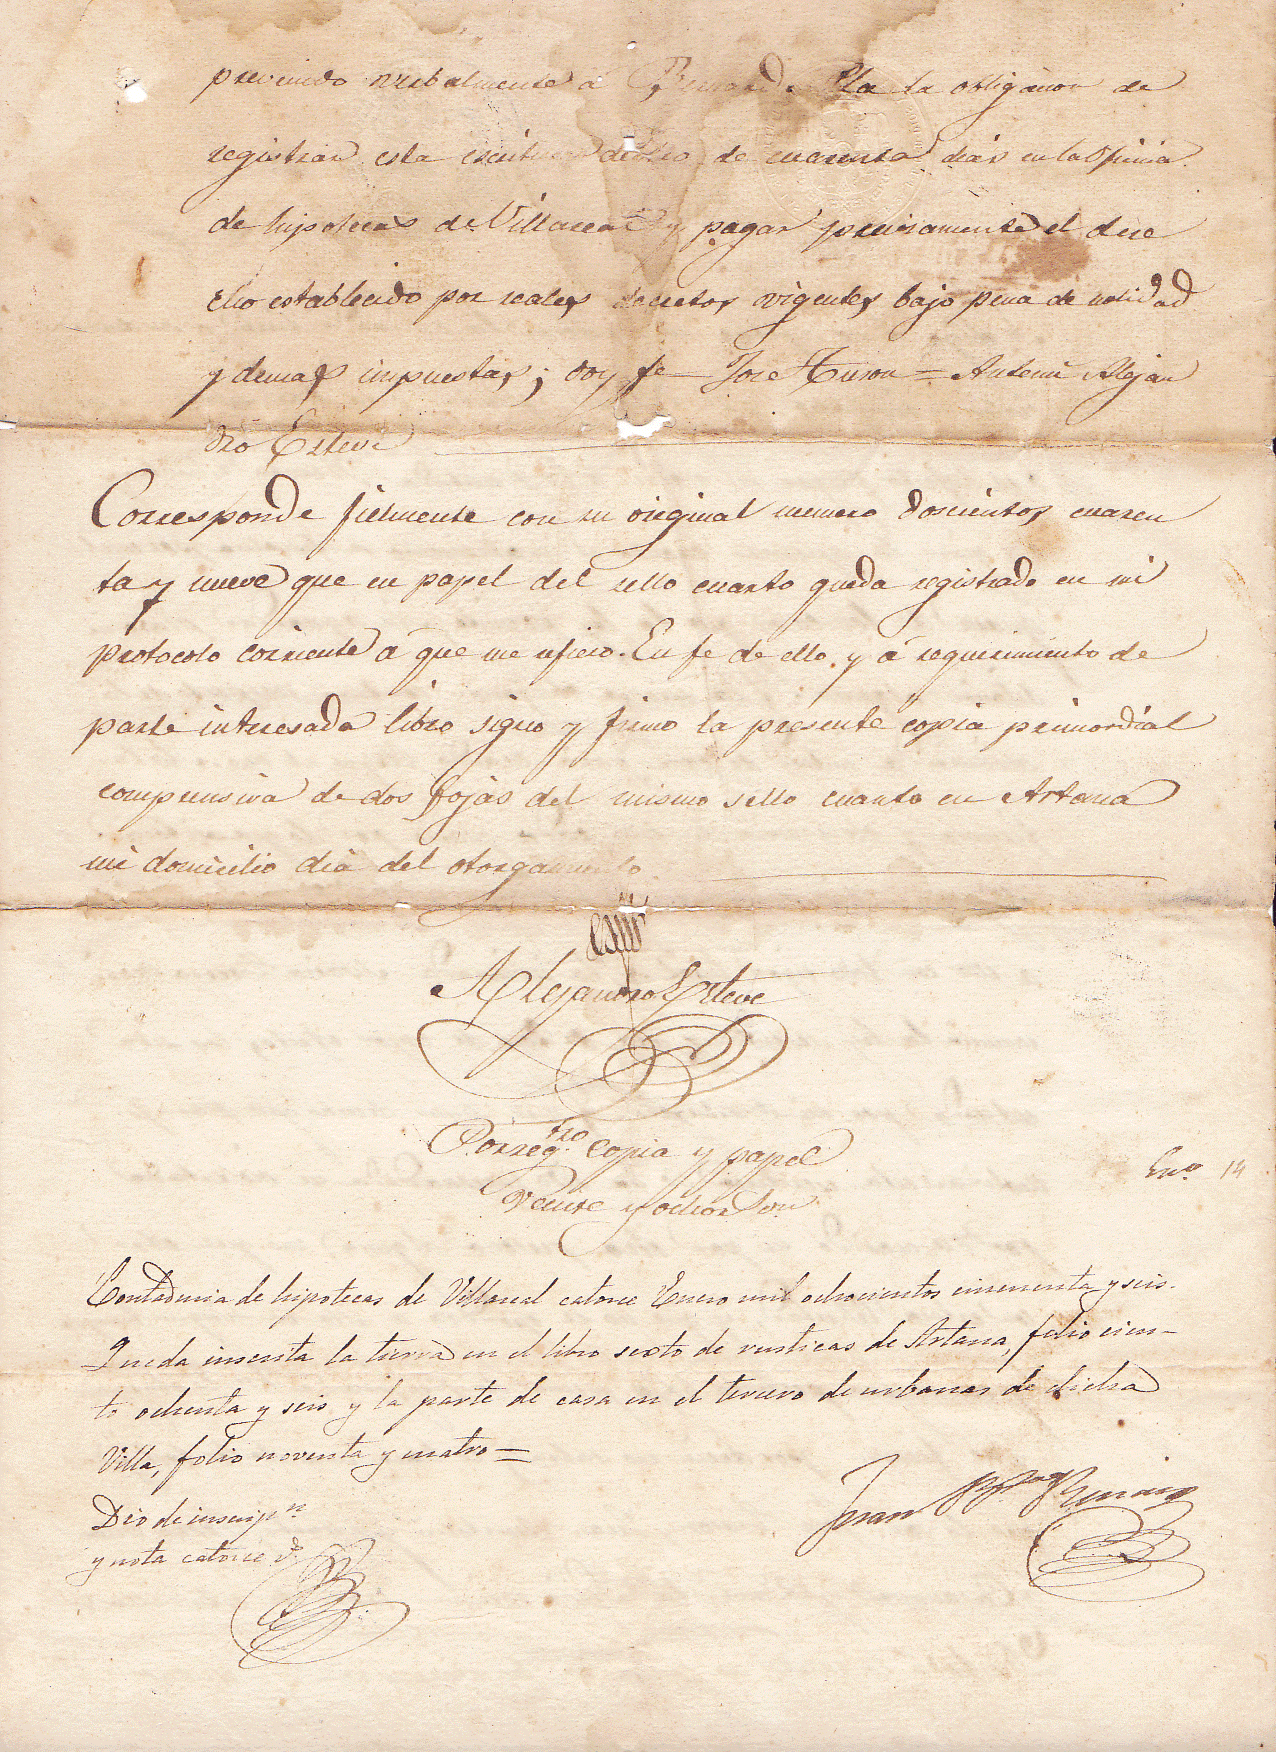 previnido verbalmente á Bernardo Pla la obligacion de
registrar esta escritura dentro de cuarenta dias en la oficina
de hipotecas de Villarreal y pagar previamente el dere
cho establecido por reales decretos vigentes bajo pena de nulidad
y demas impuestas; doy fe — Jose Tuson = Antemi Alejan
dro Esteve
Corresponde fielmente con su original numero doscientos cuaren
ta y nueve que en papel del sello cuarto queda registrado en mi
protocolo corriente á que me refiero. En fe de ello, y á requirimiento de
parte interesada libro signo y firmo la presente copia primordial
comprensiva de dos fojas del mismo sello cuarto en Artana
mi domicilio dia del otorgamiento.
Alejandro Esteve
Por reg.tro copia y papel
veinte y ocho
En.o 14
Contaduria de hipotecas de Villareal catorce Enero mil ochocientos cincuenta y seis.
Queda inscrita la tierra en el libro sesto de rusticas de Artana, folio cien-
to ochenta y seis y la parte de casa en el tercero de urbanas de dicha
Villa, folio noventa y cuatro =
Dro de inscrip.n
y nota catorce r.s
Juan